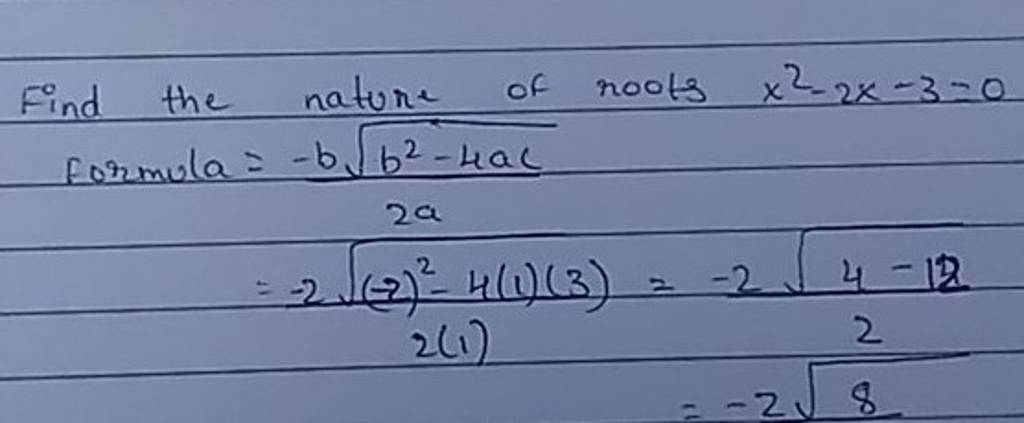 Find the nature of roots x² - 2x - 3 = 0
formula = -b√b² - 4ac
2a
= -2√(-2)² - 4(1)(3) = -2√4 - 12
2(1) 2
= -2√8